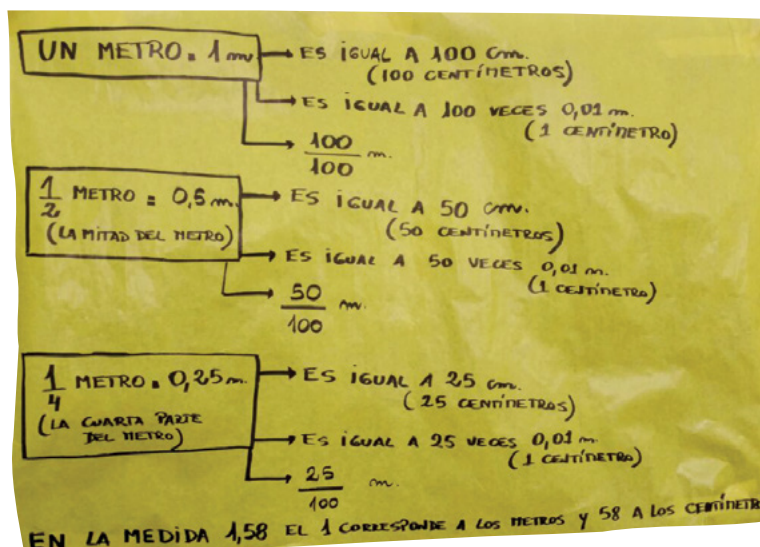 UN METRO = 1 m
ES IGUAL A 100 cm.
(100 CENTÍMETROS)
ES IGUAL A 100 VECES 0,01 m.
(1 CENTÍMETRO)
100/100 m.
1/2 METRO = 0,5 m.
(LA MITAD DEL METRO)
ES IGUAL A 50 cm.
(50 CENTÍMETROS)
ES IGUAL A 50 VECES 0,01 m.
(1 CENTÍMETRO)
50/100 m.
1/4 METRO = 0,25 m.
(LA CUARTA PARTE
DEL METRO)
ES IGUAL A 25 cm.
(25 CENTÍMETROS)
ES IGUAL A 25 VECES 0,01 m.
(1 CENTÍMETRO)
25/100 m.
EN LA MEDIDA 1,58 EL 1 CORRESPONDE A LOS METROS Y 58 A LOS CENTÍMETR